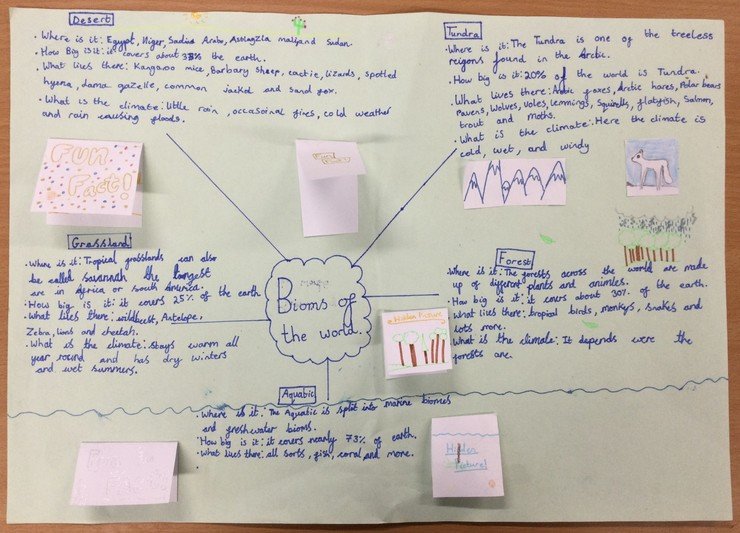 Desert
• Where is it: Egypt, Niger, Saudia Arabo, and Sudan.
• How Big is it: it covers about 33% the earth.
• What lives there: Kangaroo mice, Barbary sheep, cactie, lizards, spotted
hyena, dama gazelle, common jackal and sand fox.
• What is the climate: little rain, occasoinal fires, cold weather
and rain causing floods.
Fun
Fact!
Fun
Fact
Tundra
• Where is it: The Tundra is one of the treeless
reigons found in the Arctic.
• How big is it: 20% of the world is Tundra.
• What lives there: Arctic foxes, Arctic hares, Polar bears
Ravens, Wolves, Voles, Lemmings, Squirells, flatyfish, Salmon,
trout and moths.
• What is the climate: Here the climate is
cold, wet, and windy
Grassland
• Where is it: Tropical grasslands can also
be called savannah the longest
are in Africa or south America.
• How big is it: it covers 25% of the earth
• What lives there: wildbeest, Antelope,
Zebra, lions and cheetah.
• What is the climate: Stays warm all
year round and has dry winters
and wet summers.
Bioms of
the world.
Forest
Where is it: The forests across the world are made
up of different plants and animles.
• How big is it: it covers about 30% of the earth.
• What lives there: tropical birds, monkeys, snakes and
lots more.
• What is the climate: It depends were the
forests are.
Hidden Picture
Aquatic
• Where is it: The Aquatic is split into marine biomes
and freshwater bioms.
• How big is it: it covers nearly 73% of earth.
• What lives there: all sorts, fish, coral, and more.
Hidden
Picture!